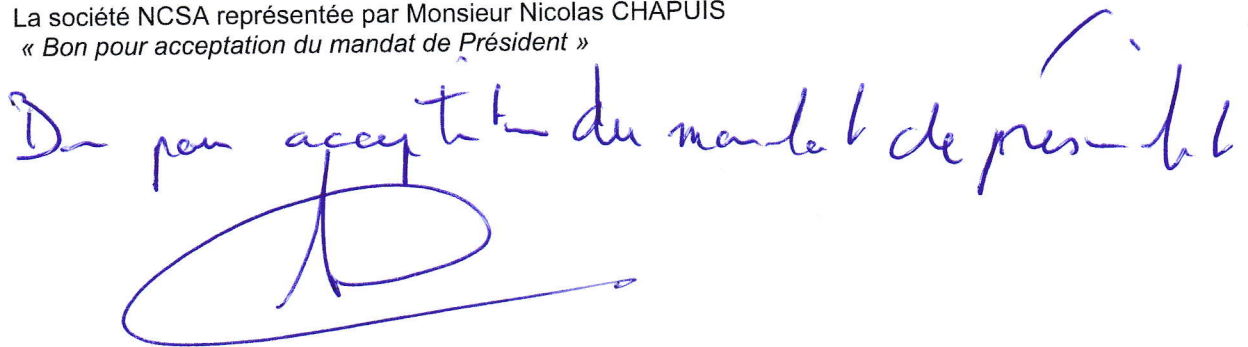 La société NCSA représentée par Monsieur Nicolas CHAPUIS
« Bon pour acceptation du mandat de Président »
Bon pour acceptation du mandat de président